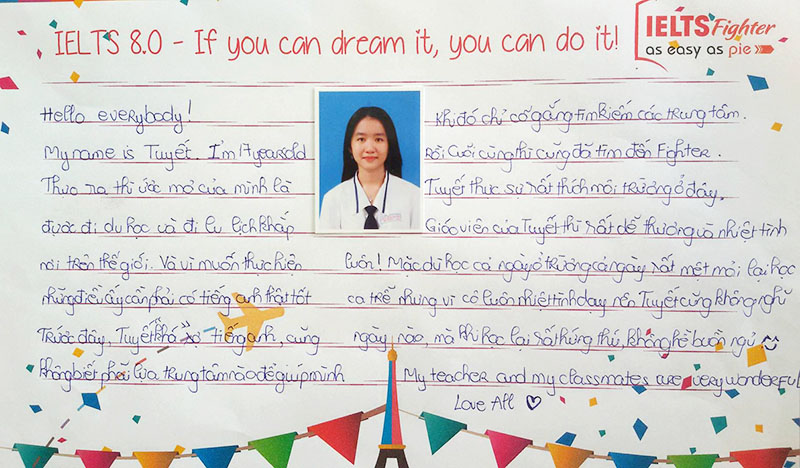 IELTS 8.0 - If you can dream it, you can do it!
IELTS Fighter
as easy as pie
Hello everybody!
My name is Tuyết. I'm 17 years old
Thực ra thì ước mơ của mình là
được đi du học và đi lu lịch khắp
nơi trên thế giới. Và vì muốn thực hiện
những điều ấy cần phải có tiếng anh thật tốt
Trước đây, Tuyết khá sợ tiếng anh, cũng
không biết phải lựa trung tâm nào để giúp mình
Khi đó chỉ cố gắng tìm kiếm các trung tâm.
Rồi cuối cùng thì cũng đã tìm đến Fighter.
Tuyết thực sự rất thích môi trường ở đây.
Giáo viên của Tuyết thì rất dễ thương và nhiệt tình
luôn! Mặc dù học cả ngày ở trường cả ngày rất mệt mỏi, lại học
ca trễ nhưng vì cô luôn nhiệt tình dạy nên Tuyết cũng không nghỉ
ngày nào, mà khi học lại rất hứng thú, không hề buồn ngủ
My teacher and my classmates are very wonderful
Love All